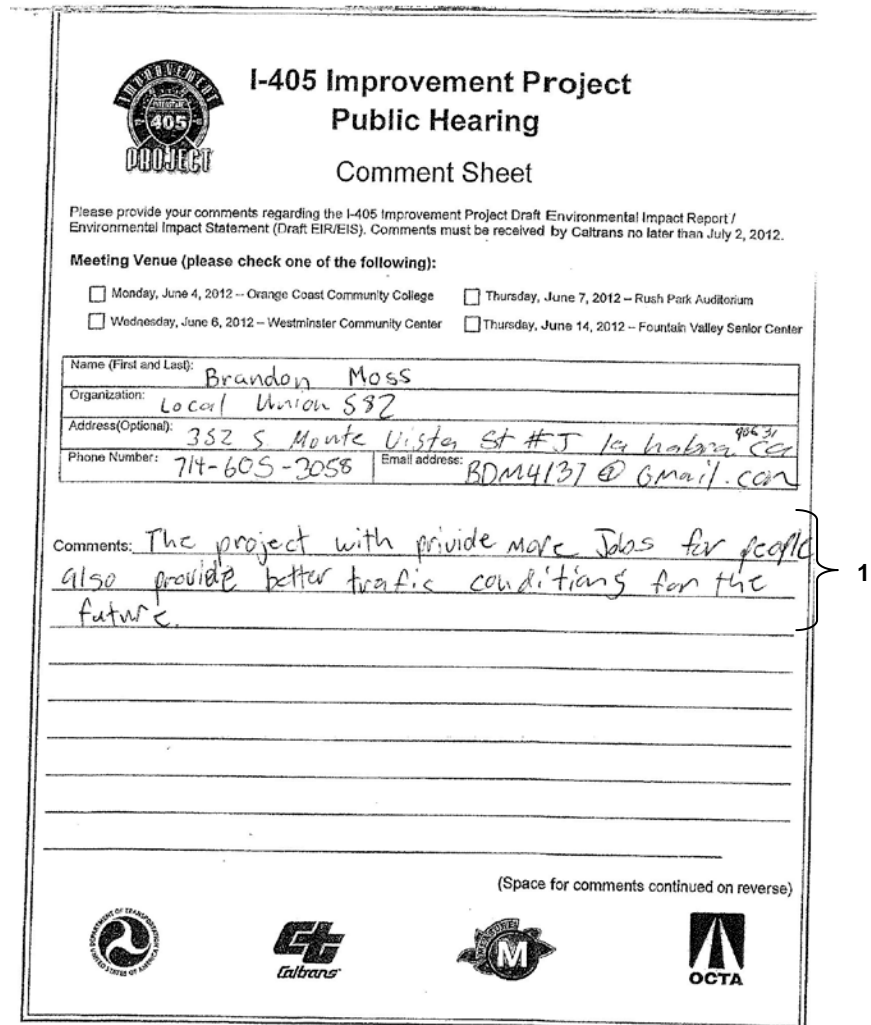 IMPROVEMENT
405
PROJECT
I-405 Improvement Project
Public Hearing
Comment Sheet
Please provide your comments regarding the I-405 Improvement Project Draft Environmental Impact Report /
Environmental Impact Statement (Draft EIR/EIS). Comments must be received by Caltrans no later than July 2, 2012.
Meeting Venue (please check one of the following):
Monday, June 4, 2012 – Orange Coast Community College
Thursday, June 7, 2012 – Rush Park Auditorium
Wednesday, June 6, 2012 – Westminster Community Center
Thursday, June 14, 2012 – Fountain Valley Senior Center
Name (First and Last): Brandon Moss
Organization: Local Union 582
Address(Optional): 352 S. Monte Vista St # J la habra Ca 90631
Phone Number: 714-605-3058 Email address: BDM4137@Gmail.com
Comments: The project with privide more Jobs for people
also provide better trafic conditions for the
future.
1
(Space for comments continued on reverse)
DEPARTMENT OF TRANSPORTATION
UNITED STATES OF AMERICA
Caltrans
MEASURE
M
OCTA